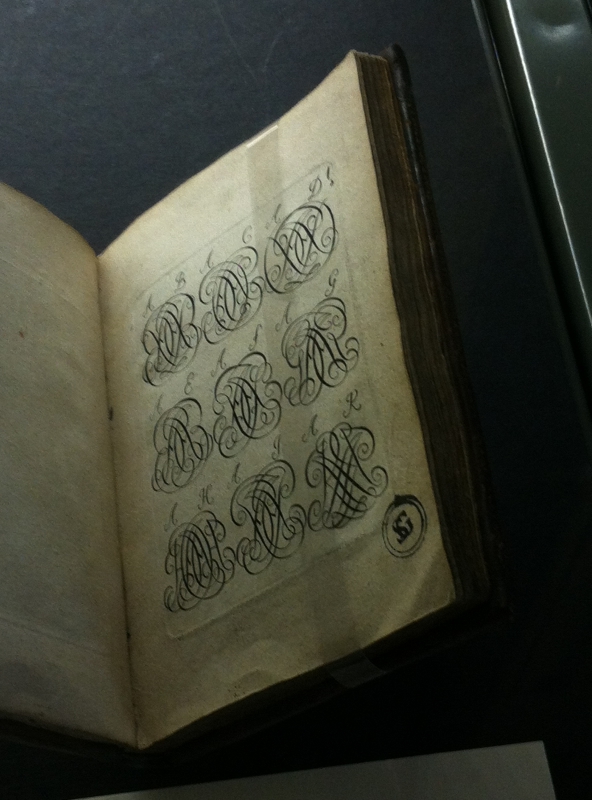 A B A C A D
A E A F A G
A H A J A K